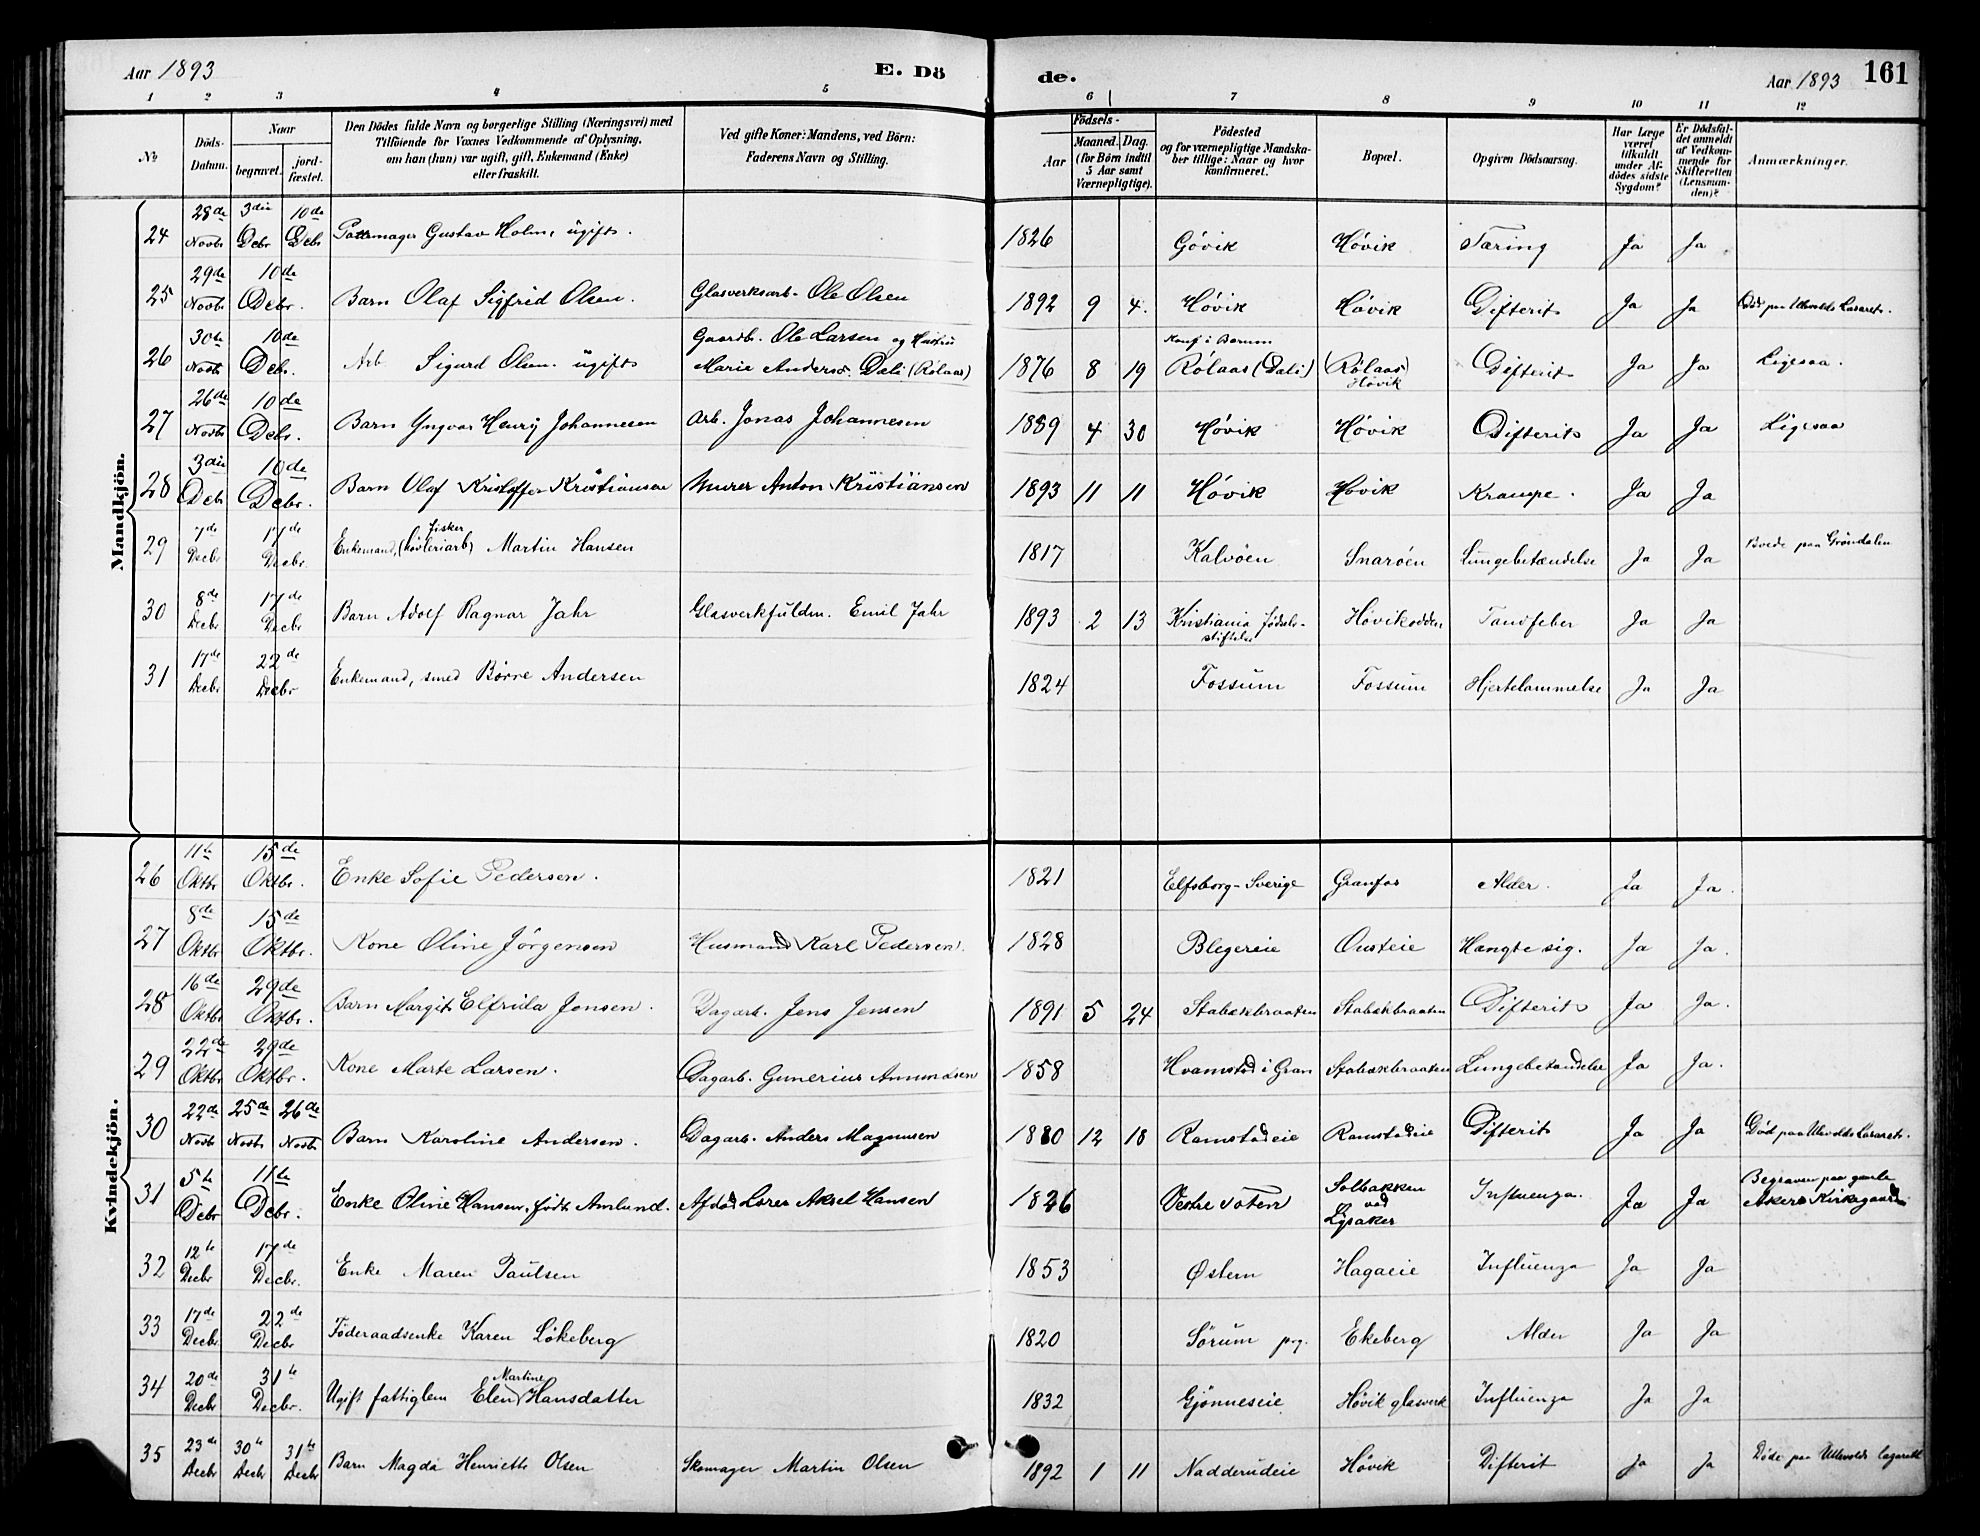 Aar 1893 E. Dö de. Aar 1893 161
1 2 3 4 5 6 7 8 9 10 11 12
No.
Döds-Datum.
Naar
begravet.
jord-fæstet.
Den Dödes fulde Navn og borgerlige Stilling (Næringsvei) med
Tilföiende for Voxnes Vedkommende af Oplysning.
om han (hun) var ugift, gift, Enkemand (Enke)
eller fraskilt.
Ved gifte Koner: Mandens, ved Börn:
Faderens Navn og Stilling.
Födsels-
Aar
Maaned. Dag.
(for Börn indtil
5 Aar samt
Værnepligtige).
Födested
og for værnepligtige Mandska-
ber tillige: Naar og hvor
konfirmeret.
Bopæl.
Opgiven Dödsaarsag.
Har Læge
været
tilkaldt
under Af-
dödes sidste
Sygdom?
Er Dödsfal-
det anmeldt
af Vedkom-
mende for
Skifteretten
(Lensman-
den)?
Anmærkninger.
Mandkjön.
24 28de Novbr 3die Debr 10de Debr Pottemager Gustav Holm, ugift. 1826 Gjövik Hövik Tæring Ja Ja
25 29de Novbr 10de Debr. Barn Olaf Sigfrid Olsen. Glasverksarb. Ole Olsen 1892 9 4. Hövik Hövik Difterit Ja Ja Död paa Ullevolds Lasaret.
26 30te Novbr 10de Debr. Arb Sigurd Olsen. ugift Gaardb. Ole Larsen og Hustru
Marie Anders. Dali (Rölaas) 1876 8 19 Konf i Bærum
Rölaas (Dali) (Rölaas)
Hövik Difterit Ja Ja Ligesaa.
27 26de Novbr 10de Debr. Barn Yngvar Henry Johannesen Arb. Jonas Johannesen 1889 4 30 Hövik Hövik Difterit Ja Ja Ligesaa
28 3die Deb 10de Debr. Barn Olaf Kristoffer Kristiansen Murer Anton Kristiansen 1893 11 11 Hövik Hövik Krampe. Ja Ja
29 7de Decbr 17de Decbr. Enkemand, (hövleriarb) fisker Martin Hansen 1817 Kalvöen Snaröen Lungebetændelse Ja Ja Boede paa Gröndalen
30 8de Decbr 17de Decbr Barn Adolf Ragnar Jahr Glasverkfuldm. Emil Jahr 1893 2 13 Kristiania födsels-
stiftelse Hövikodden Tandfeber Ja Ja
31 17de Decbr 22de Decbr Enkemand, smed Börre Andersen 1824 Fossum Fossum Hjertelammelse Ja Ja
Kvindekjön.
26 11te Oktbr 15de Oktbr. Enke Sofie Pedersen. 1821 Elfsborg-Sverige Granfos Alder. Ja Ja.
27 8de Oktbr 15de Oktbr. Kone Oline Jörgensen Husmand Karl Pedersen. 1828 Blegereie Ousteie Hængte sig. Ja Ja.
28 16de Oktbr 29de Oktbr. Barn Margit Elfrida Jensen. Dagarb. Jens Jensen 1891 5 24 Stabækbraaten Stabækbraaten Difterit Ja Ja.
29 22de Oktbr 29de Oktbr. Kone Marte Larsen. Dagarb. Gunerius Amundsen 1858 Hvamstad i Gran Stabækbraaten Lungebetændelse Ja Ja.
30 22de Novbr 25de Novbr 26de Novbr Barn Karoline Andersen. Dagarb. Anders Magnusen 1880 12 18 Ramstadeie Ramstadeie Difterit Ja Ja Död paa Ulevolds Lasaret.
31 5te Debr 11te Debr. Enke Oline Hansen, födt Amlund. Afdöd Lærer Aksel Hansen 1826 Vestre Toten Solbakken
ved
Lysaker Influenza. Ja Ja Begraven paa gamle
Akers Kirkegaard
32 12te Decbr 17de Decbr. Enke Maren Paulsen 1853 Østern Hagaeie Influenza Ja Ja
33 17de Decbr 22de Decbr Föderaadsenke Karen Lökeberg 1820 Sörum prg. Ekeberg Alder Ja Ja
34 20de Decbr 31te Decbr. Ugift fattiglem Elen Martine Hansdatter 1832 Gjönneseie Hövik glasverk Influenza Ja Ja
35 23de Decbr 30te Decbr 31te Decbr Barn Magda Henriette Olsen Skomager Martin Olsen 1892 1 11 Nadderudeie Hövik Difterit Ja Ja Döde paa Ullevolds lazarett